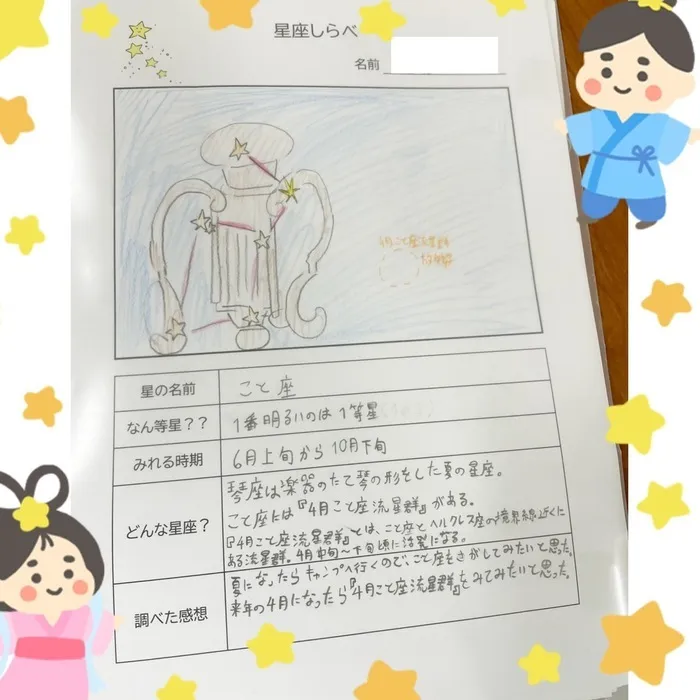 星座しらべ
名前
4月こと座流星群
星の名前
こと座
なん等星??
1番明るいのは1等星
みれる時期
6月上旬から10月下旬
どんな星座?
琴座は楽器のたて琴の形をした夏の星座。
こと座には『4月こと座流星群』がある。
『4月こと座流星群』とは、こと座とヘルクレス座の境界線近くに
ある流星群。4月中旬~下旬頃に活発になる。
調べた感想
夏になったらキャンプへ行くので、こと座をさがしてみたいと思った。
来年の4月になったら『4月こと座流星群』をみてみたいと思った。